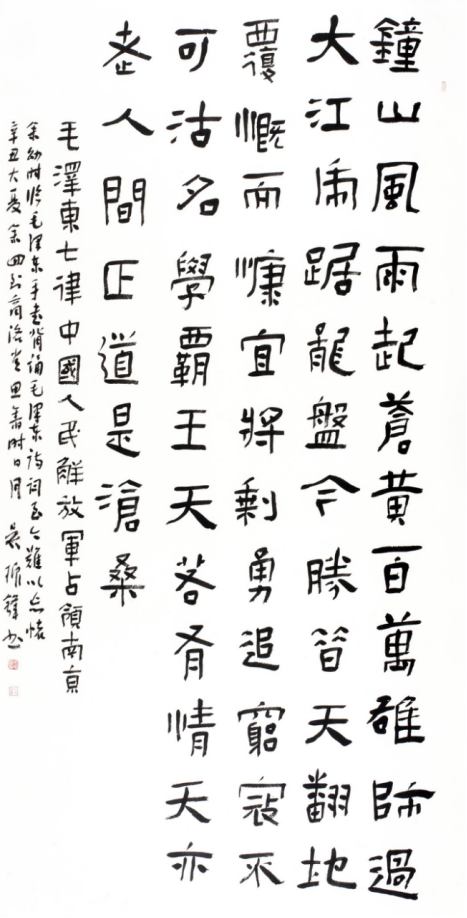 鐘山風雨起蒼黃百萬雄師過
大江虎踞龍盤今勝昔天翻地
覆慨而慷宜將剩勇追窮寇不
可沽名學霸王天若有情天亦
老人間正道是滄桑
毛澤東七律中國人民解放軍占領南京
余幼时临毛泽东手书背诵毛泽东诗词至今難以忘懷
辛丑大夏余回到商洛思舊时日月 吴振鋒书